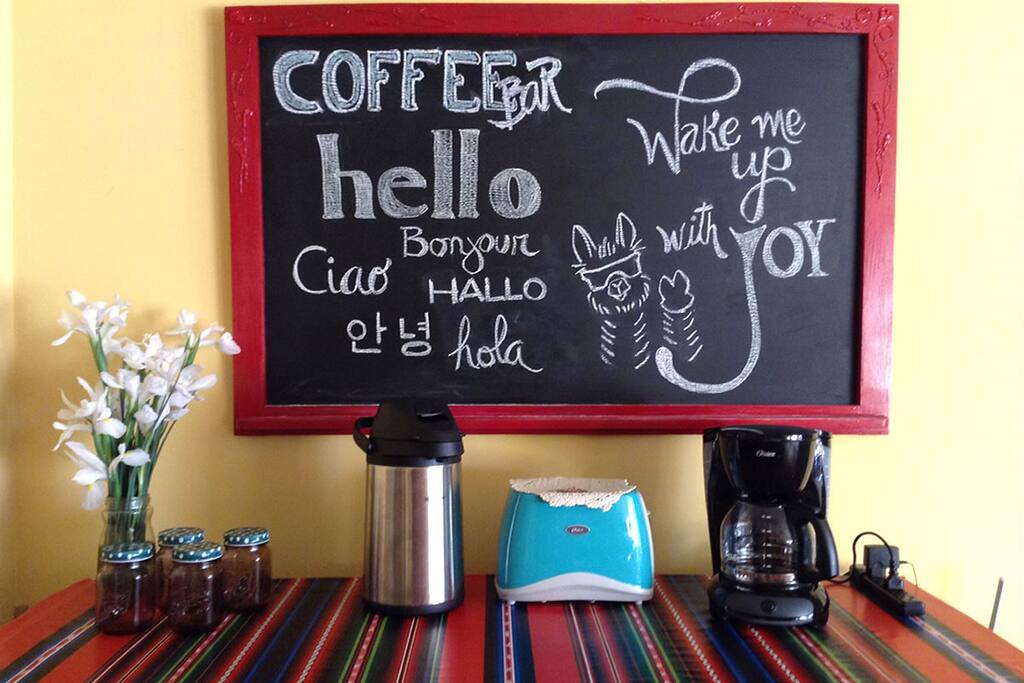 COFFEE BAR
hello
Bonjour
Ciao
HALLO
안녕
hola
Wake me
up
with JOY
Oster
Oster